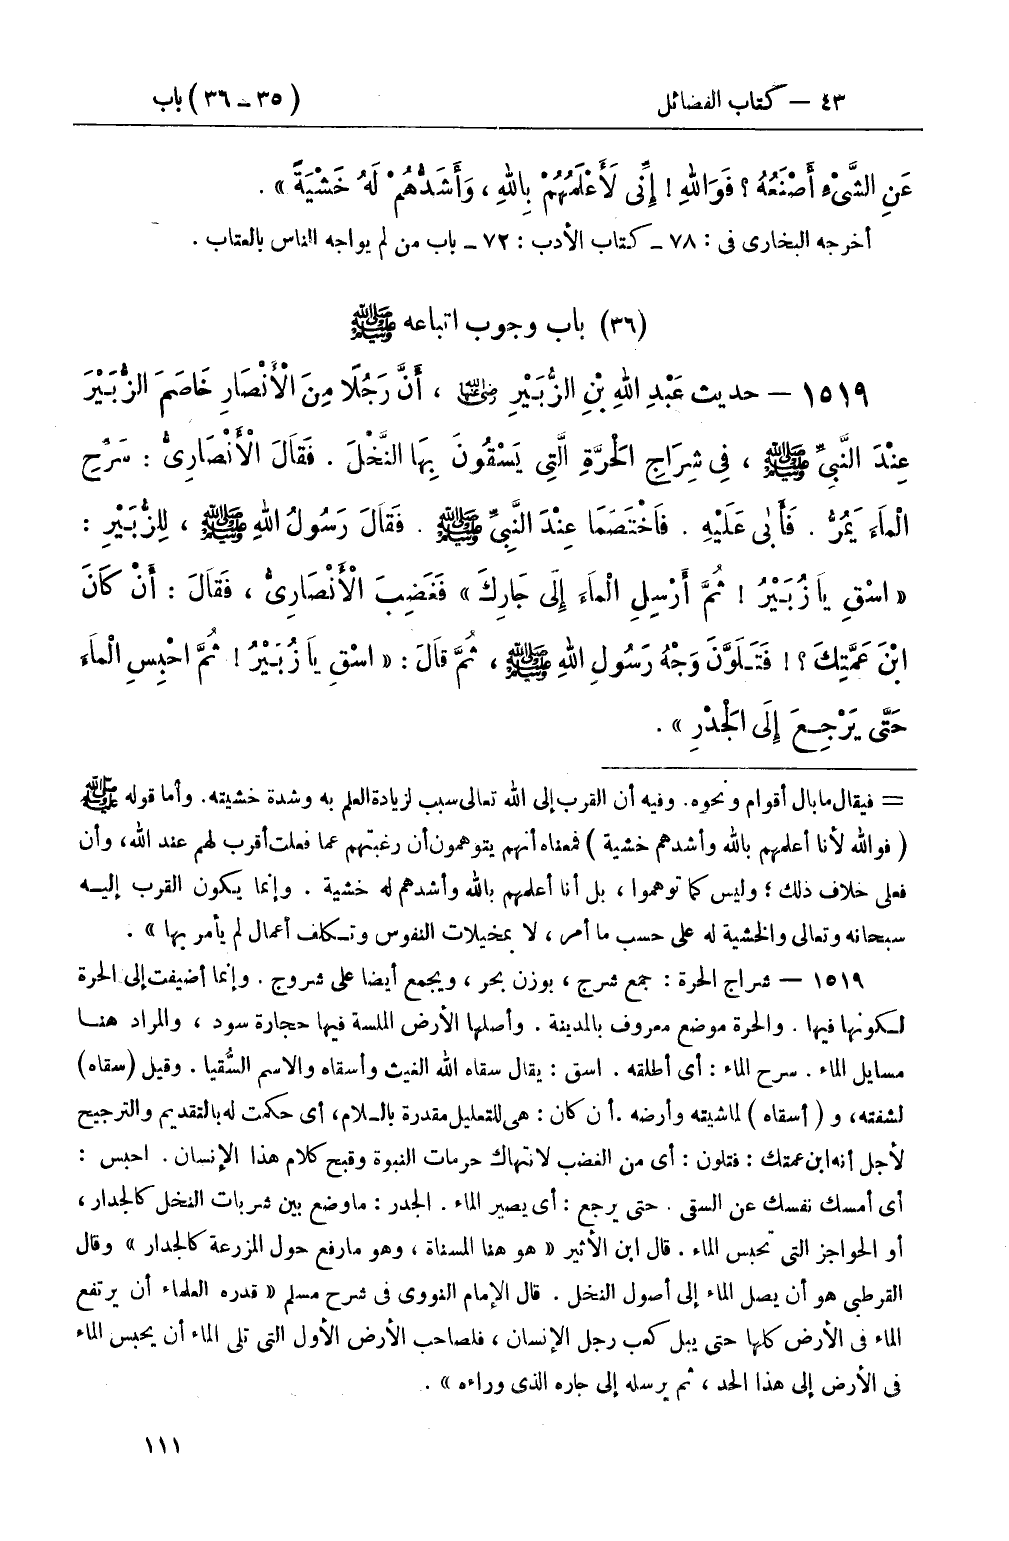 ٤٣ – كتاب الفضائل (٣٥ – ٣٦) باب
عَنِ الشَّىْءِ أَصْنَعُهُ ؟ فَوَاللهِ ! إِنِّى لَأَعْلَمُهُمْ بِاللهِ ، وَأَشَدُّهُمْ لَهُ خَشْيَةً » .
أخرجه البخارى فى : ٧٨ – كتاب الأدب : ٧٢ – باب من لم يواجه الناس بالعتاب .
(٣٦) باب وجوب اتباعه ﷺ
١٥١٩ – حديث عَبْدِ اللهِ بْنِ الزُّبَيْرِ رضي الله عنهما ، أَنَّ رَجُلًا مِنَ الْأَنْصَارِ خَاصَمَ الزُّبَيْرَ
عِنْدَ النَّبِيِّ ﷺ ، فِي شِرَاجِ الْحَرَّةِ الَّتِي يَسْقُونَ بِهَا النَّخْلَ . فَقَالَ الْأَنْصَارِىُّ : سَرِّحِ
الْمَاءَ يَمُرُّ . فَأَبَى عَلَيْهِ . فَاخْتَصَمَا عِنْدَ النَّبِيِّ ﷺ . فَقَالَ رَسُولُ اللهِ ﷺ ، لِلزُّبَيْرِ :
« اسْقِ يَا زُبَيْرُ ! ثُمَّ أَرْسِلِ الْمَاءَ إِلَى جَارِكَ » فَغَضِبَ الْأَنْصَارِىُّ ، فَقَالَ : أَنْ كَانَ
ابْنَ عَمَّتِكَ ؟! فَتَلَوَّنَ وَجْهُ رَسُولِ اللهِ ﷺ ، ثُمَّ قَالَ : « اسْقِ يَا زُبَيْرُ ! ثُمَّ احْبِسِ الْمَاءَ
حَتَّى يَرْجِعَ إِلَى الْجَدْرِ » .
= فيقال ما بال أقوام ونحوه. وفيه أن القرب إلى الله تعالى سبب لزيادة العلم به وشدة خشيته. وأما قوله ﷺ
( فوالله لأنا أعلمهم بالله وأشدهم خشية ) فمعناه أنهم يتوهمون أن رغبتهم عما فعلت أقرب لهم عند الله، وأن
فعلى خلاف ذلك ؛ وليس كما توهموا ، بل أنا أعلمهم بالله وأشدهم له خشية . وإنما يكون القرب إليه
سبحانه وتعالى والخشية له على حسب ما أمر ، لا بمخيلات النفوس وتكلف أعمال لم يأمر بها » .
١٥١٩ – شراج الحرة : جمع شرج ، بوزن بحر ، ويجمع أيضا على شروج . وإنما أضيفت إلى الحرة
لكونها فيها . والحرة موضع معروف بالمدينة . وأصلها الأرض الملسة فيها حجارة سود ، والمراد هنا
مسايل الماء . سرح الماء : أى أطلقه . اسق : يقال سقاه الله الغيث وأسقاه والاسم السُّقيا . وقيل (سقاه)
لشفته، و ( أسقاه ) لماشيته وأرضه . أن كان : هى للتعليل مقدرة باللام، أى حكمت له بالتقديم والترجيح
لأجل أنه ابن عمتك : فتلون : أى من الغضب لانتهاك حرمات النبوة وقبح كلام هذا الإنسان . احبس :
أى أمسك نفسك عن السقى . حتى يرجع : أى يصير الماء . الجدر : ما وضع بين شربات النخل كالجدار ،
أو الحواجز التى تحبس الماء . قال ابن الأثير « هو هنا المسناة ، وهو ما رفع حول المزرعة كالجدار » وقال
القرطبى هو أن يصل الماء إلى أصول النخل . قال الإمام النووى فى شرح مسلم « قدره العلماء أن يرتفع
الماء فى الأرض كلها حتى يبل كعب رجل الإنسان ، فلصاحب الأرض الأول التى تلى الماء أن يحبس الماء
فى الأرض إلى هذا الحد ، ثم يرسله إلى جاره الذى وراءه » .
١١١